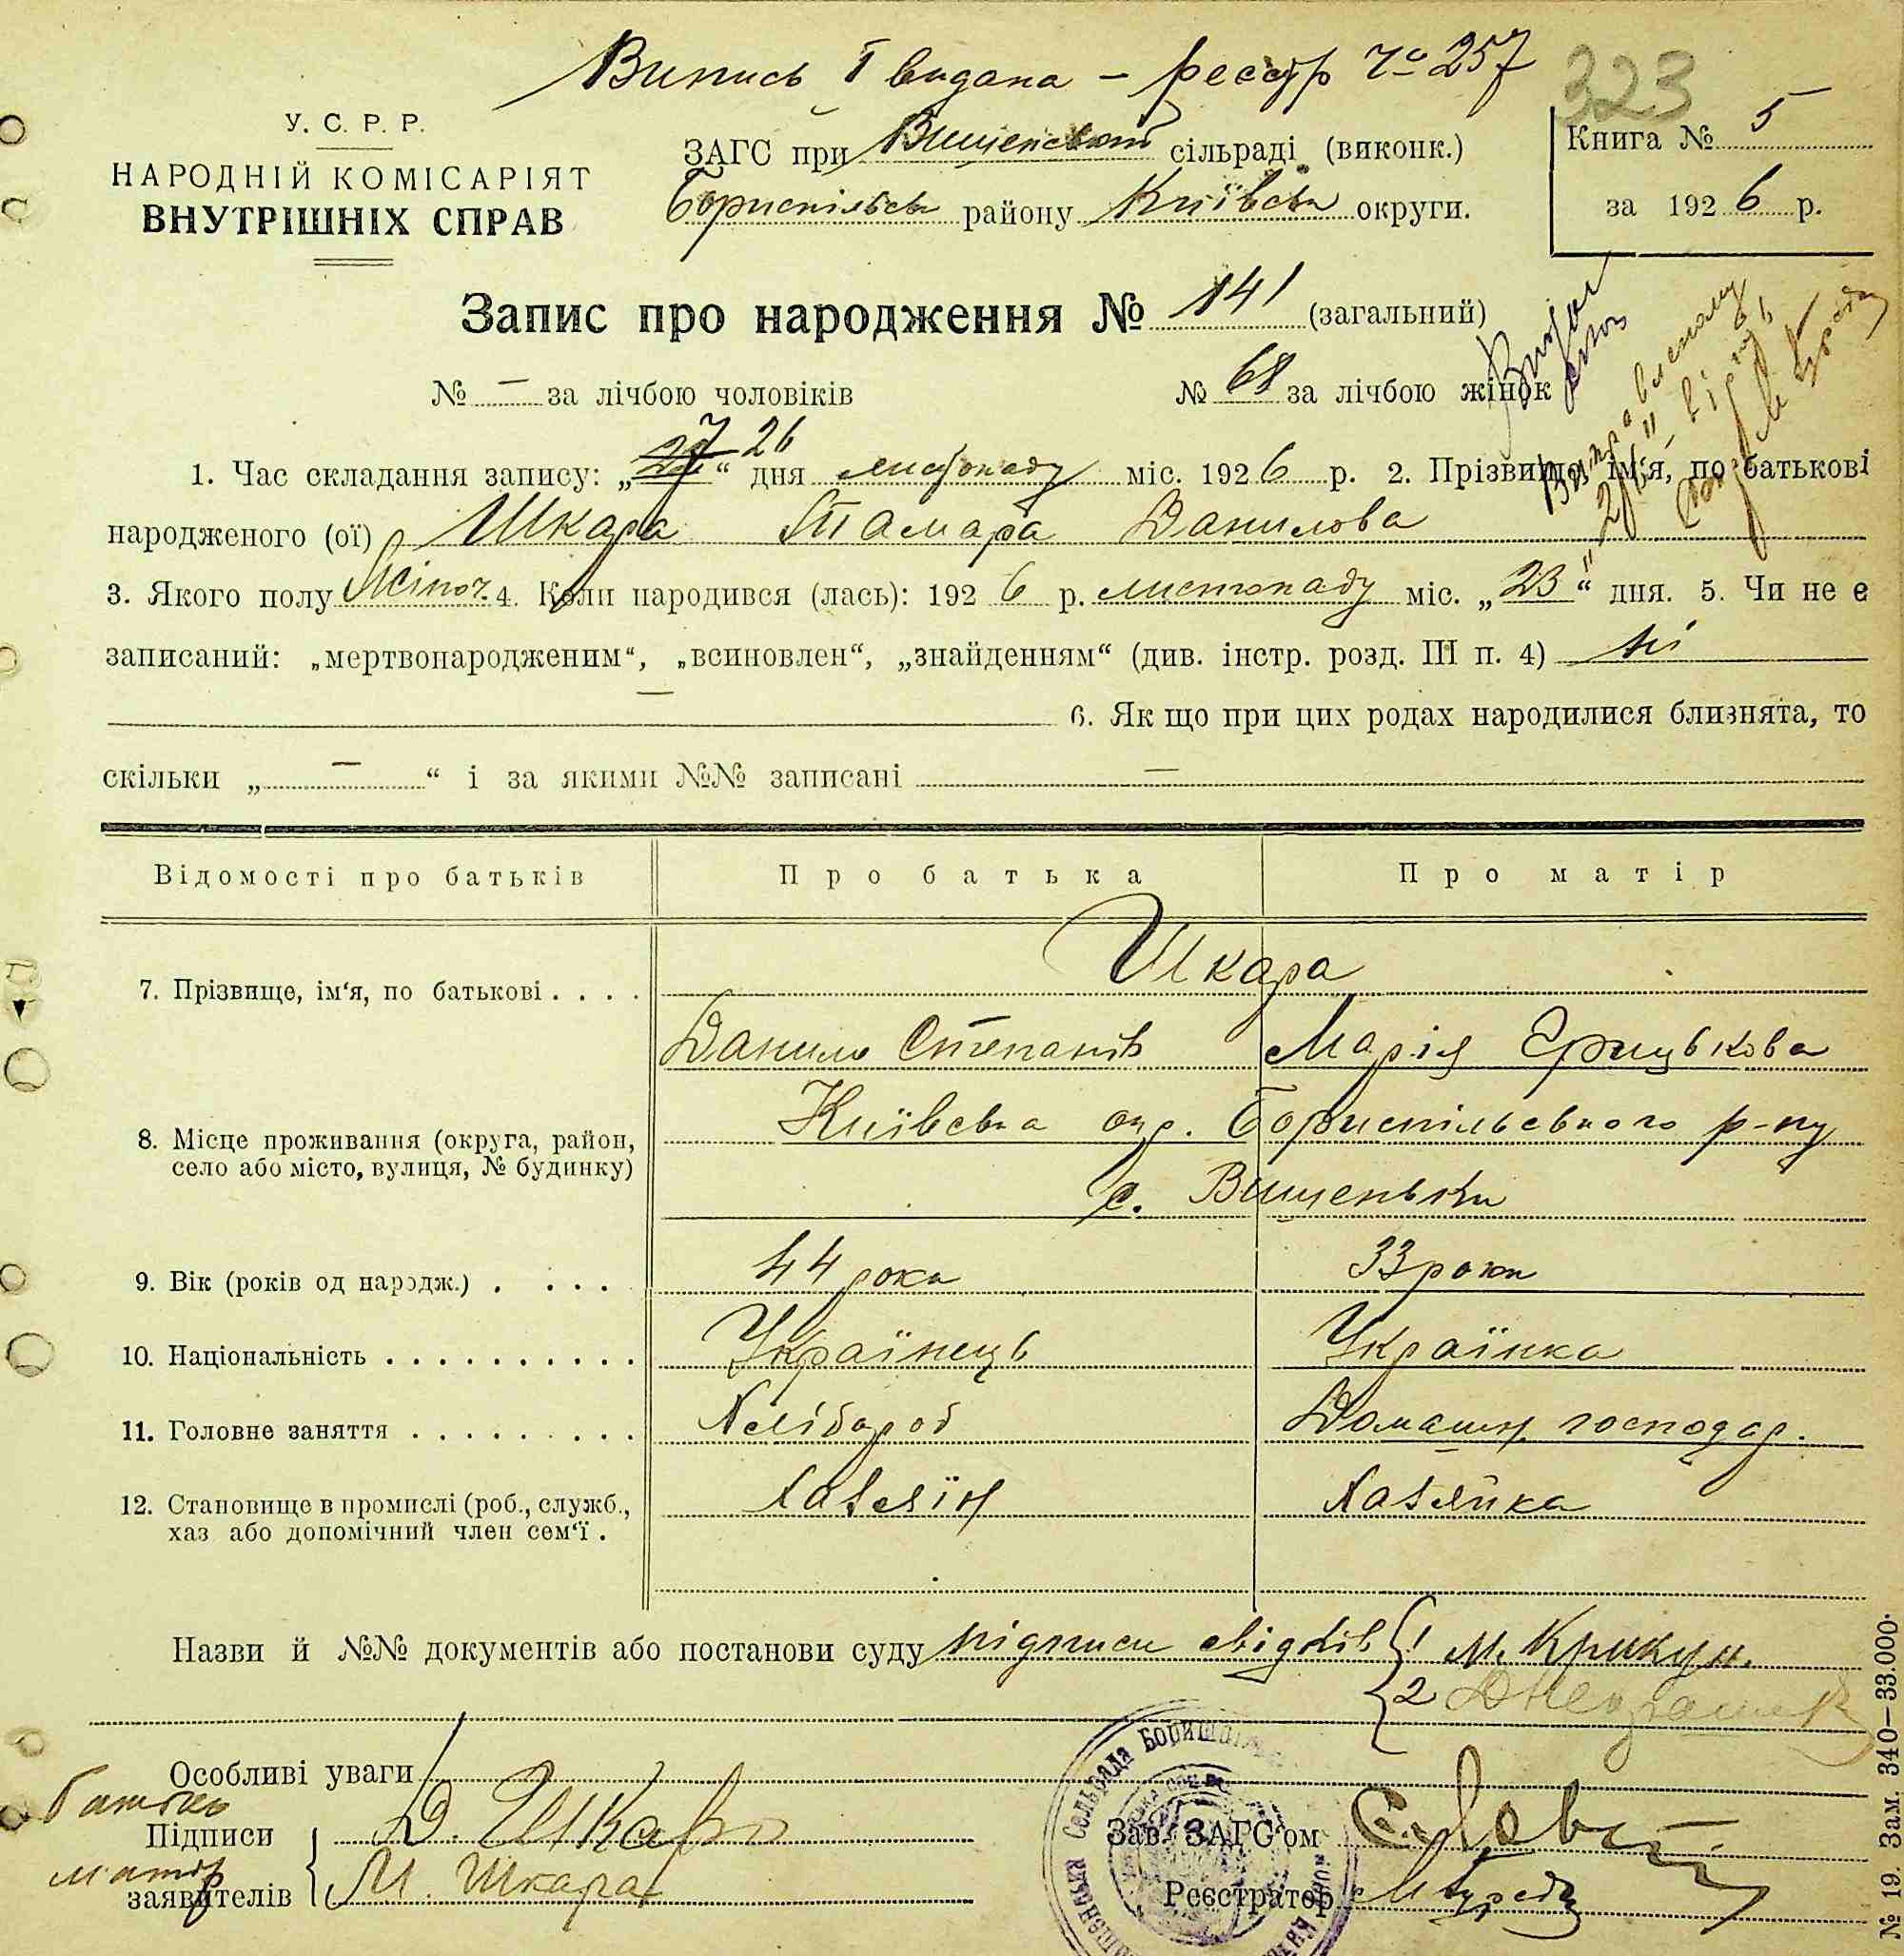 Випись І видана – реєстр № 257
323
У. С. Р. Р.
НАРОДНІЙ КОМІСАРІЯТ
ВНУТРІШНІХ СПРАВ
ЗАГС при сільраді (виконк.)
Бориспільськ району Київськ округи.
Книга № 5
за 1926 р.
Запис про народження № 141 (загальний)
№ – за лічбою чоловіків № 68 за лічбою жінок
1. Час складання запису: „ “ 26 дня листопаду міс. 1926 р. 2. Прізвище, ім'я, по батькові
народженого (ої) Шкара Тамара Данилова
3. Якого полу Жіноч. 4. Коли народився (лась): 1926 р. листопаду міс. „23“ дня. 5. Чи не є
записаний: „мертвонародженим“, „всиновлен“, „знайденням“ (див. інстр. розд. III п. 4) ні
– 6. Як що при цих родах народилися близнята, то
скільки „ – “ і за якими №№ записані –
Відомості про батьків Про батька Про матір
7. Прізвище, ім'я, по батькові . . . . Шкара
Данило Степанів Марія Грицькова
8. Місце проживання (округа, район, село або місто, вулиця, № будинку) Київська окр. Бориспільського р-ну
с. Вишеньки
9. Вік (років од народж.) . . . . 44 рока 33 роки
10. Національність . . . . . . . . . . . Українець Українка
11. Головне заняття . . . . . . . . . . Хлібороб Домашн. господар.
12. Становище в промислі (роб., служб., хаз або допомічний член сем'ї . Хазяїн Хазяйка
Назви й №№ документів або постанови суду підписи свідків { 1 М. Крикун.
2
Особливі уваги
батько
Підписи Д. Шкара
матір
заявителів М. Шкара
Зав. ЗАГС'ом
Реєстратор
Сельрада
№ 19. Зам. 340–33.000.